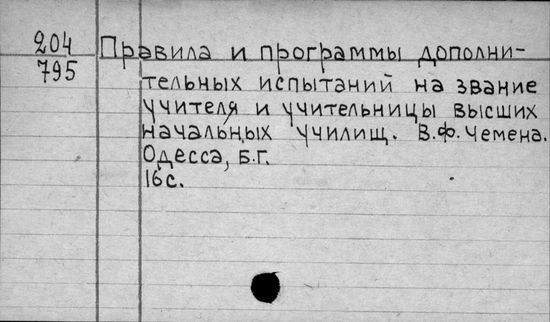 204
795
Правила и программы дополни-
тельных испытаний на звание
учителя и учительницы высших
начальных училищ. В.Ф. Чемена.
Одесса, Б.Г.
16 с.